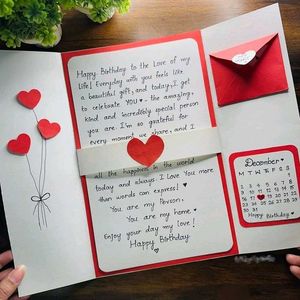 Happy Birthday to the Love of my
Life! Everyday with you feels like
a beautiful gift, and today, I get
to celebrate YOU ♥ - the amazing,
kind and incredibly special person
you are. I'm so grateful for
every moment we share, and I
all the happiness in the world
today and always. I Love You more
than words can express! ♥
You are my Person,
You are my home ♥
Enjoy your day my love!
Happy Birthday
December
M T W T F S S
Happy Birthday!